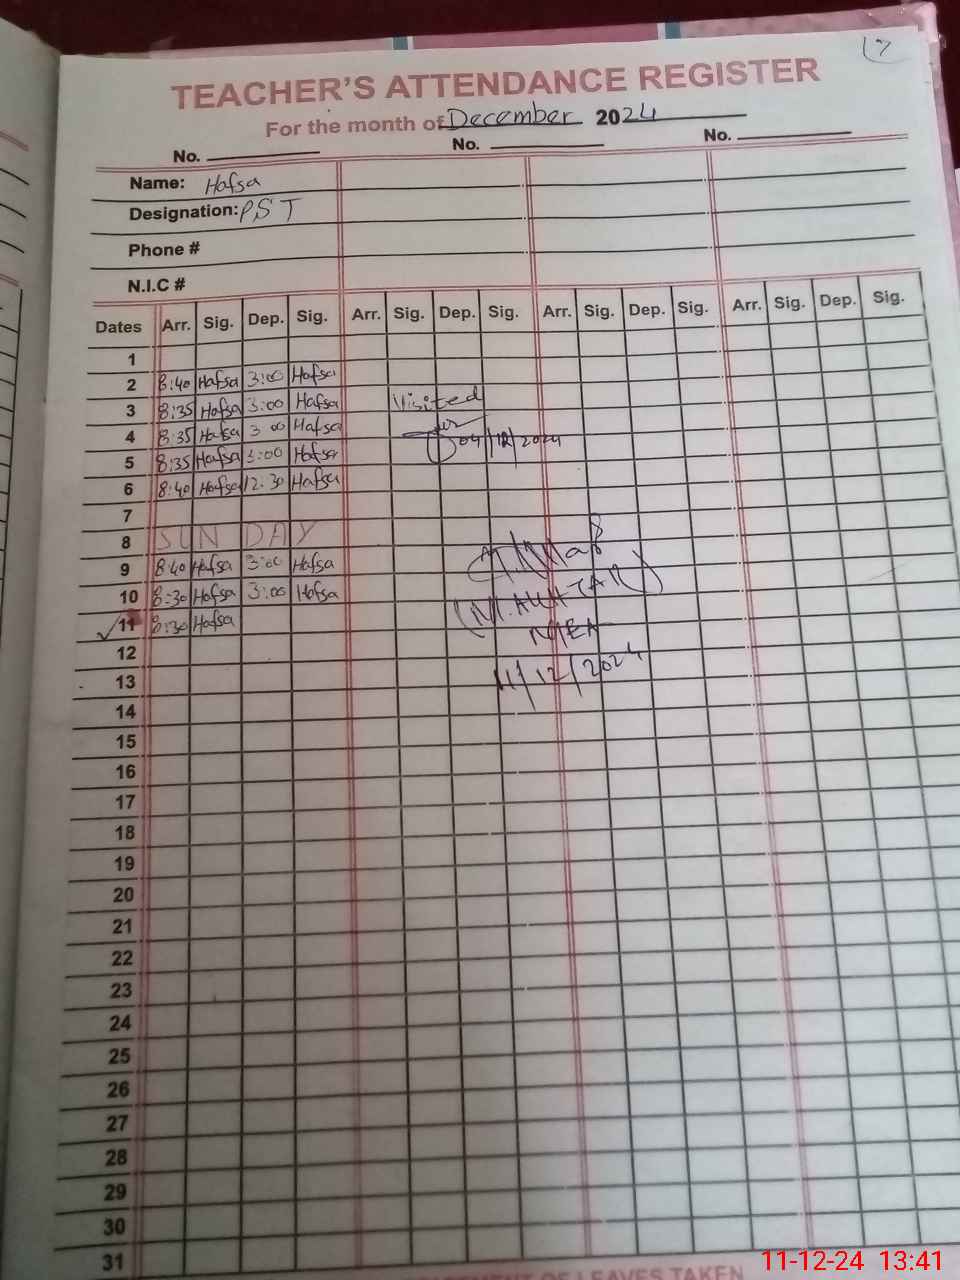 17
TEACHER'S ATTENDANCE REGISTER
For the month of December 2024
No. No. No.
Name: Hafsa
Designation: PST
Phone #
N.I.C #
Dates Arr. Sig. Dep. Sig. Arr. Sig. Dep. Sig. Arr. Sig. Dep. Sig. Arr. Sig. Dep. Sig.
1
2 8:40 Hafsa 3:00 Hafsa
3 8:35 Hafsa 3:00 Hafsa Visited
4 8:35 Hafsa 3:00 Hafsa 04/12/2024
5 8:35 Hafsa 3:00 Hafsa
6 8:40 Hafsa 12:30 Hafsa
7
8 SUNDAY
9 8:40 Hafsa 3:00 Hafsa
10 8:30 Hafsa 3:00 Hafsa (M. AKHTAR)
11 8:30 Hafsa MEA
12
13 11/12/2024
14
15
16
17
18
19
20
21
22
23
24
25
26
27
28
29
30
31
OF LEAVES TAKEN
11-12-24 13:41